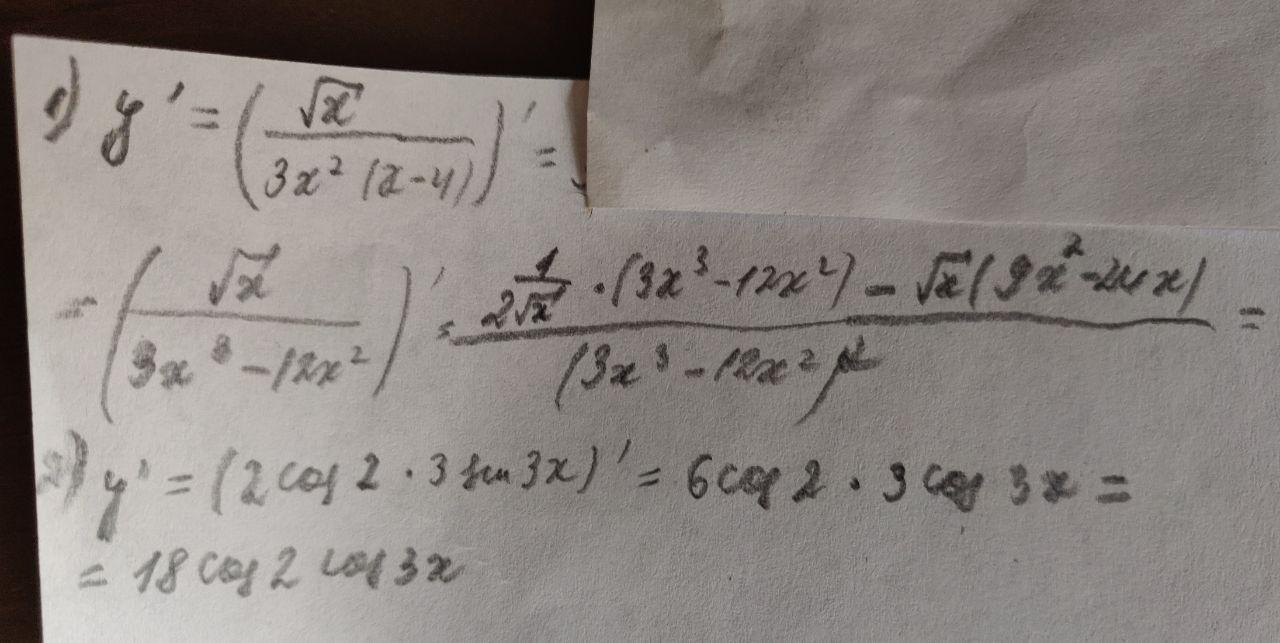 1) y' = (√x / 3x² (x-4))' =
= (√x / 3x³ - 12x²)' = 1/2√x · (3x³ - 12x²) - √x (9x² - 24x) / (3x³ - 12x²)² =
2) y' = (2 cos 2 · 3 sin 3x)' = 6 cos 2 · 3 cos 3x =
= 18 cos 2 cos 3x